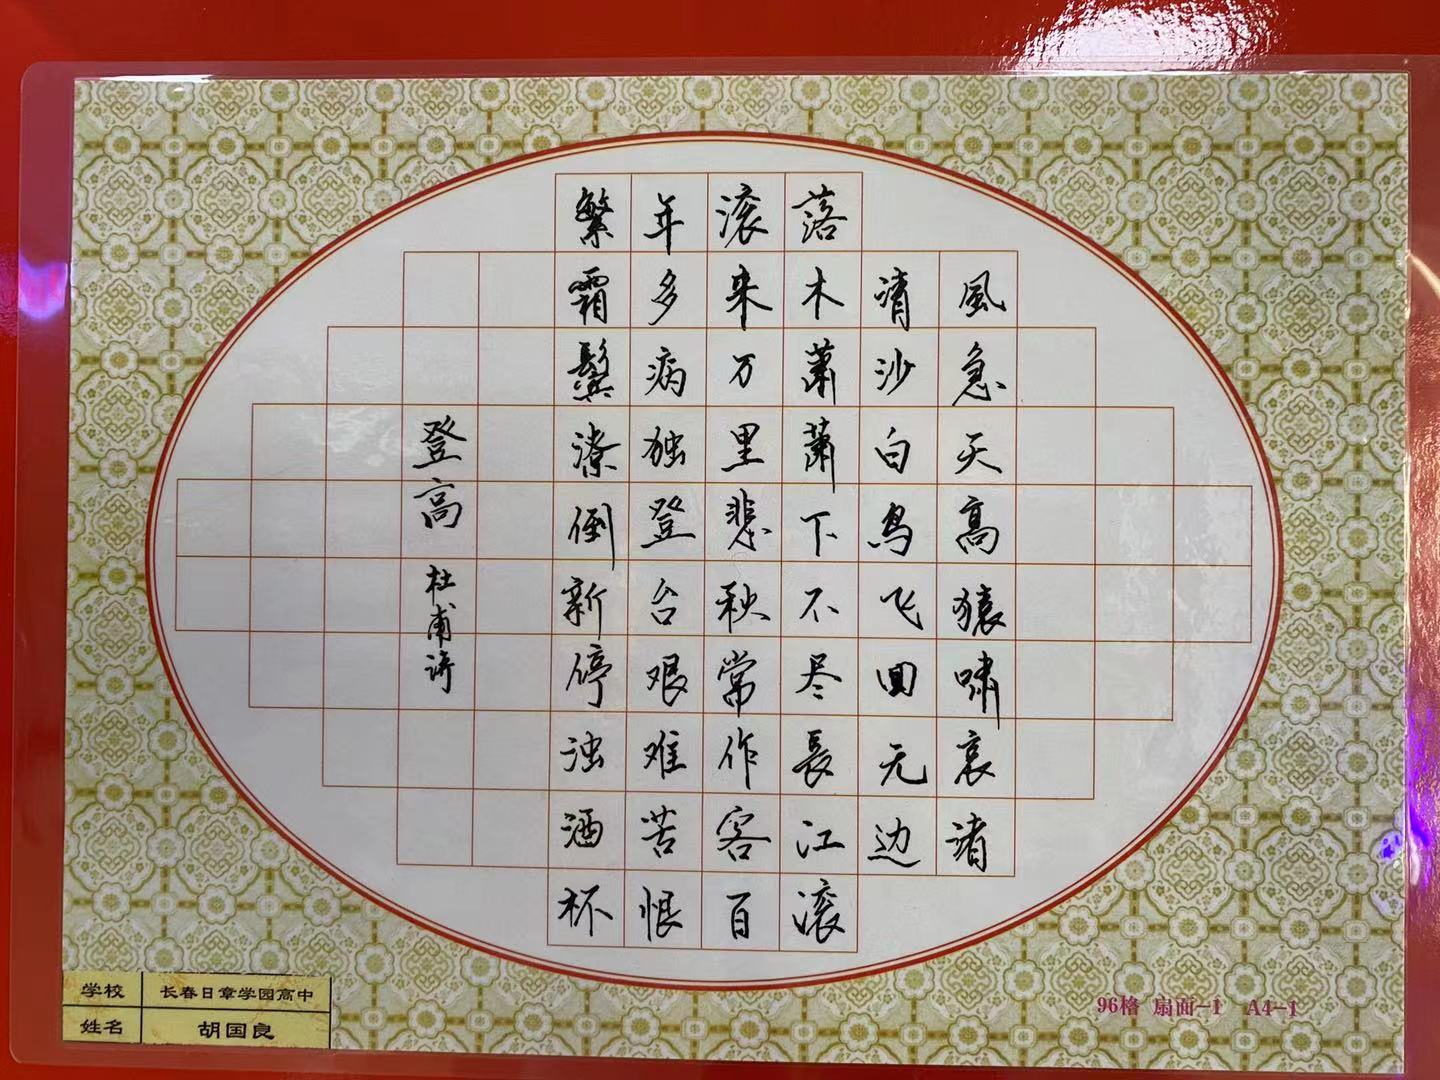 風急天高猿啸哀渚
清沙白鸟飞回无边
落木萧萧下不尽長江滚
滚来万里悲秋常作客百
年多病独登台艰难苦恨
繁霜鬓潦倒新停浊酒杯
登高 杜甫诗
学校 长春日章学园高中
姓名 胡国良
96格 扇面-1 A4-1